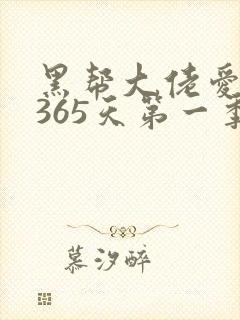 黑帮大佬爱
365天第一季
慕汐醉